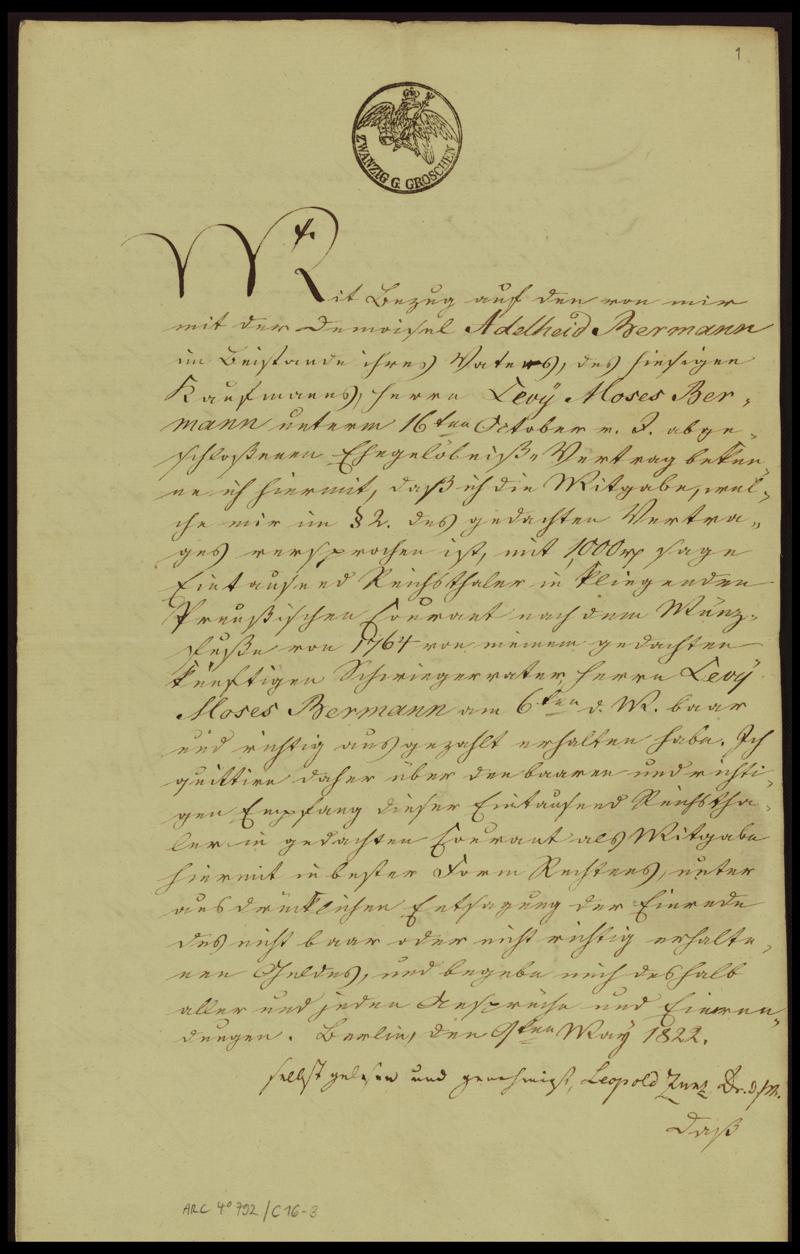 1
ZWANZIG G. GROSCHEN
Mit Bezug auf den von mir
mit der Demoisel Adelheid Bermann
im Beistande ihres Vaters, des hiesigen
Kaufmanns, Herrn Levÿ Moses Ber„
mann unterm 16ten October v. J. abge„
schloßenen Ehegelöbniß„Vertrag beken„
ne ich hiermit, daß ich die Mitgabe, wel„
che mir im § 2. des gedachten Vertra„
ges versprochen ist, mit 1,000 rp sage
Eintausend Reichsthaler in klingenden
Preußischen Courant nach dem Münz„
fuße von 1764 von meinem gedachten
künftigen Schwiegervater, Herrn Levÿ
Moses Bermann am 6ten d. M. baar
und richtig ausgezahlt erhalten habe. Ich
quittire daher über den baaren und richti„
gen Empfang dieser Eintausend Reichstha„
ler in gedachten Courant als Mitgabe
hiermit in bester Form Rechtens, unter
ausdrücklichen Entsagung der Einrede
des nicht baar oder nicht richtig erhalte„
nen Geldes, und begebe mich deshalb
aller und jeden Ansprüche und Einwen„
dungen. Berlin, den 9ten May 1822.
selbst gelesen und genehmigt, Leopold Zunz Dr.
Daß
ARC 4° 792 / C 16-3